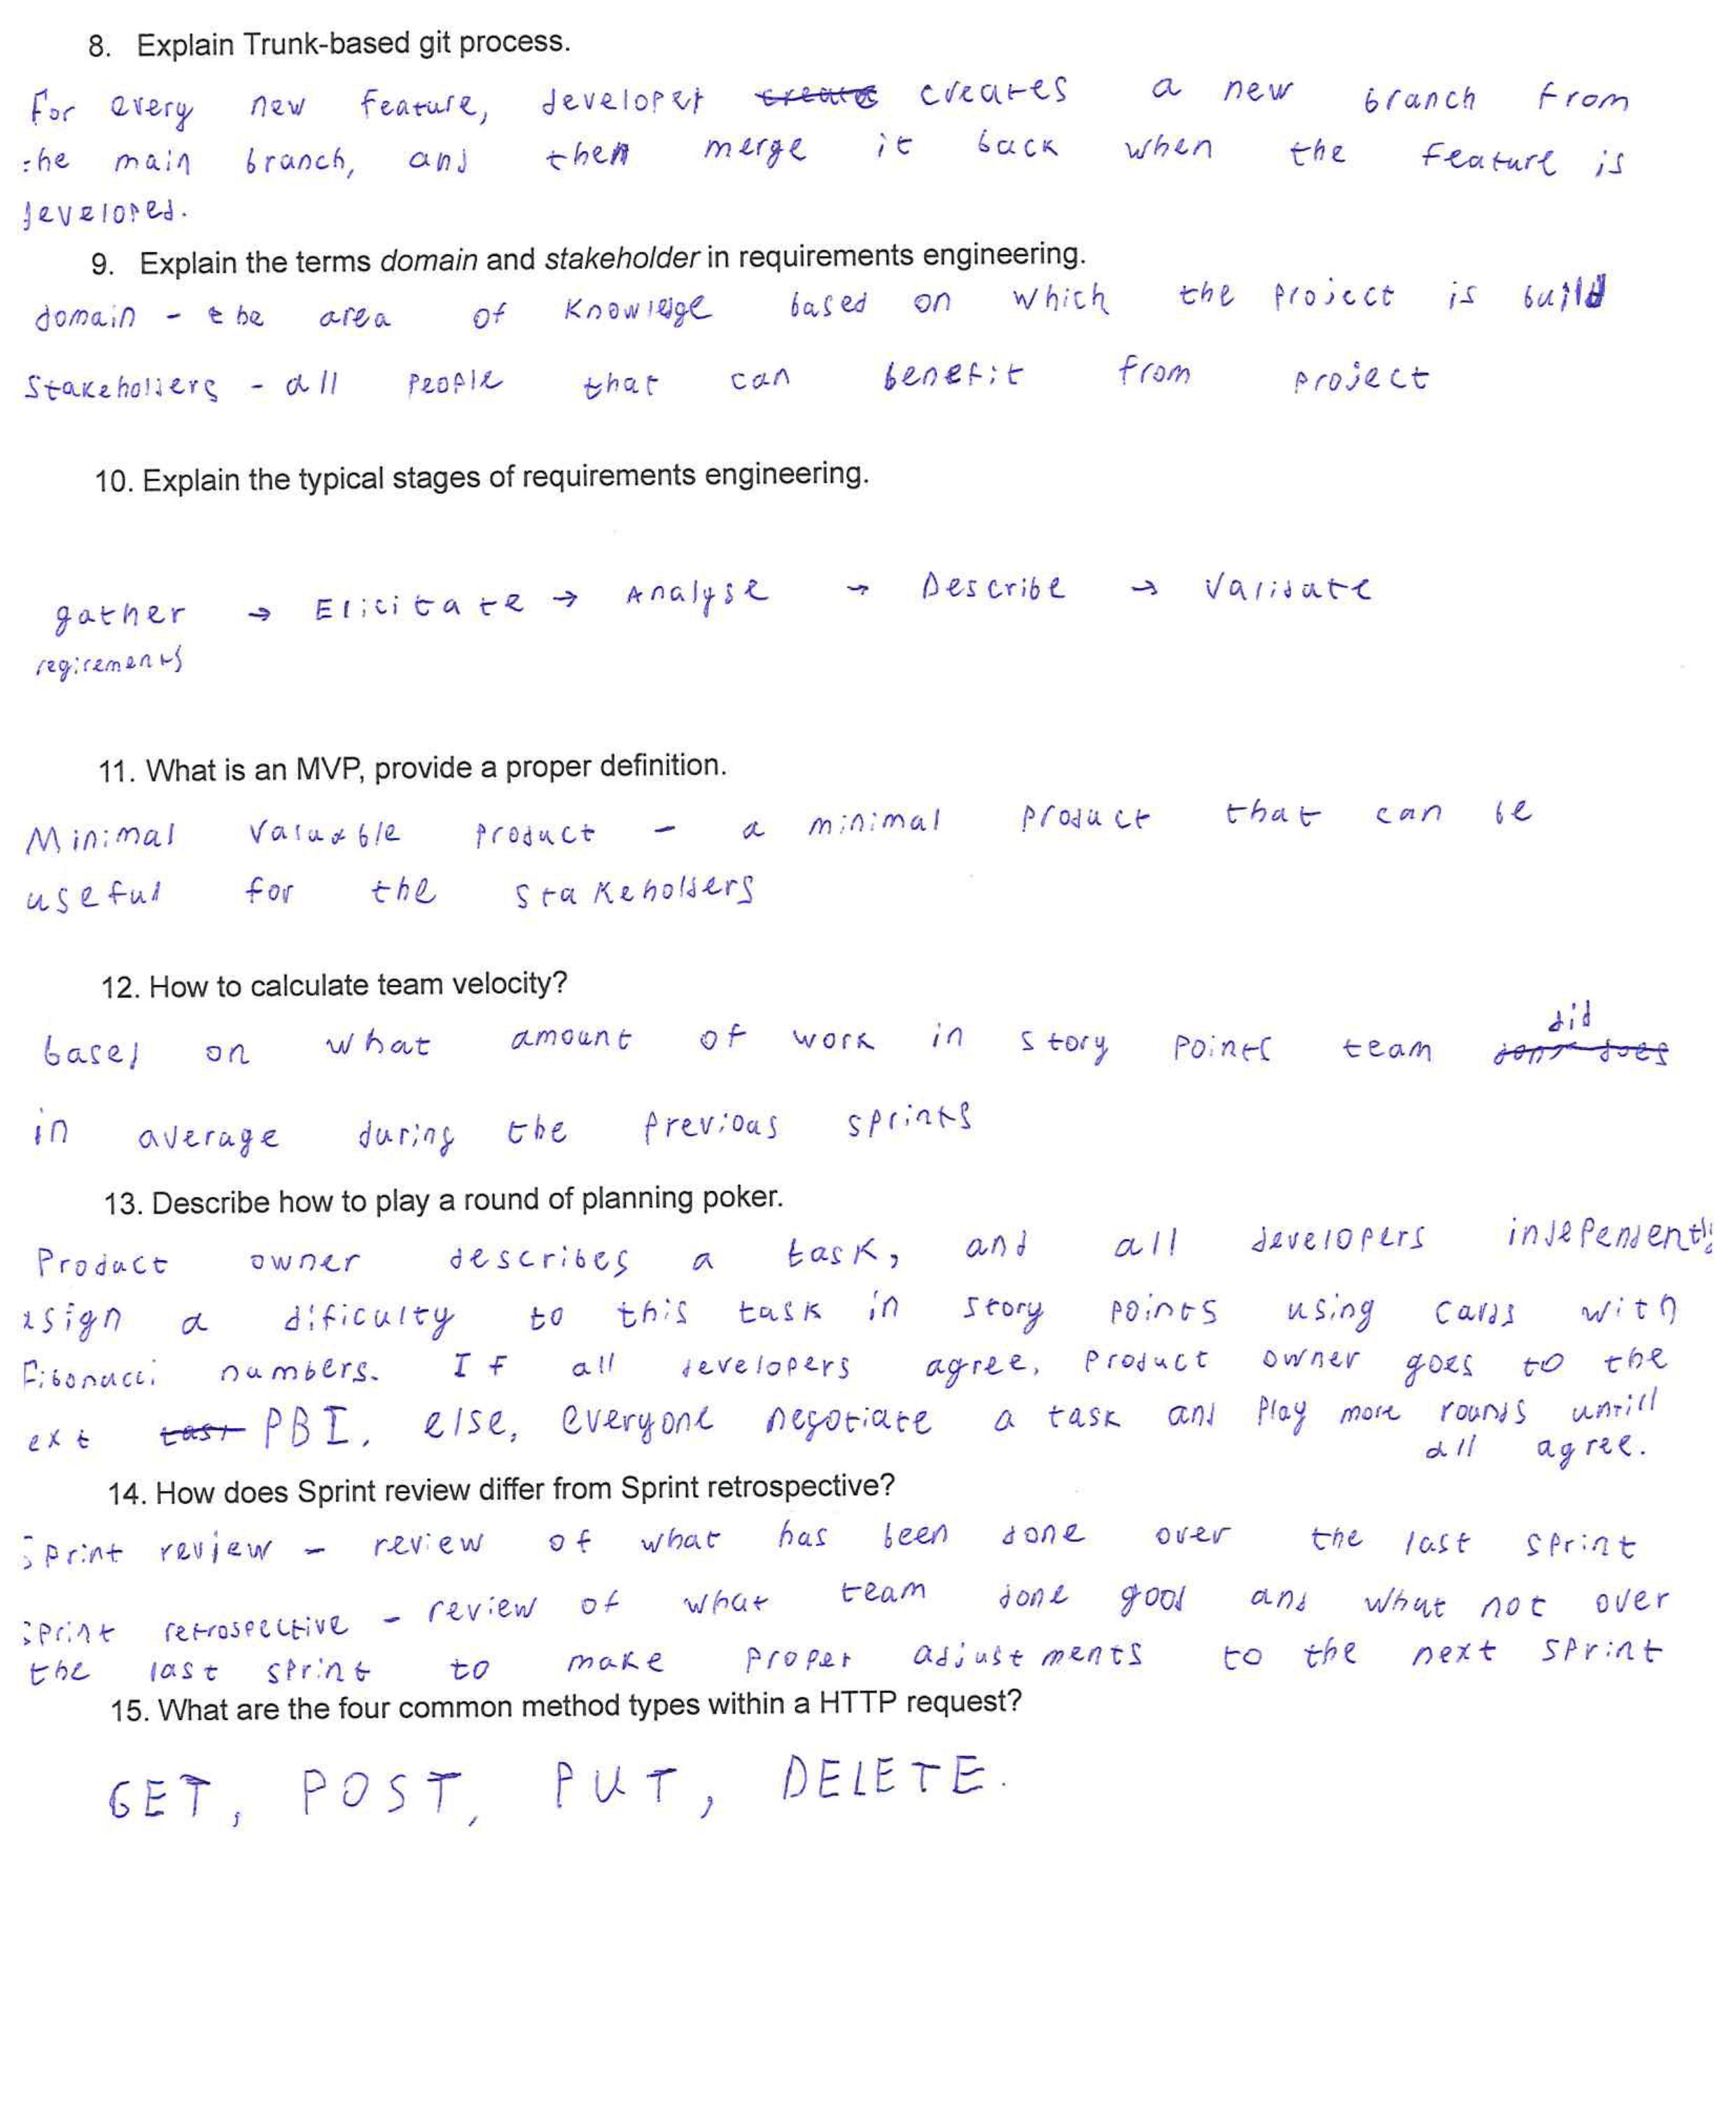 8. Explain Trunk-based git process.
For every new feature, developer create creates a new branch from
the main branch, and then merge it back when the feature is
developed.
9. Explain the terms domain and stakeholder in requirements engineering.
domain - the area of knowledge based on which the project is build
Stakeholders - all people that can benefit from project
10. Explain the typical stages of requirements engineering.
gather → Elicitate → Analyse → Describe → Validate
regirements
11. What is an MVP, provide a proper definition.
Minimal Valuable product - a minimal product that can be
useful for the stakeholders
12. How to calculate team velocity?
did
based on what amount of work in story points team does
in average during the previous sprints
13. Describe how to play a round of planning poker.
Product owner describes a task, and all developers independently
asign a dificulty to this task in story points using cards with
Fibonacci numbers. If all developers agree, product owner goes to the
ext PBI, else, everyone negotiate a task and play more rounds untill
all agree.
14. How does Sprint review differ from Sprint retrospective?
Sprint review - review of what has been done over the last sprint
Sprint retrospective - review of what team done good and what not over
the last sprint to make proper adjustments to the next sprint
15. What are the four common method types within a HTTP request?
GET, POST, PUT, DELETE.